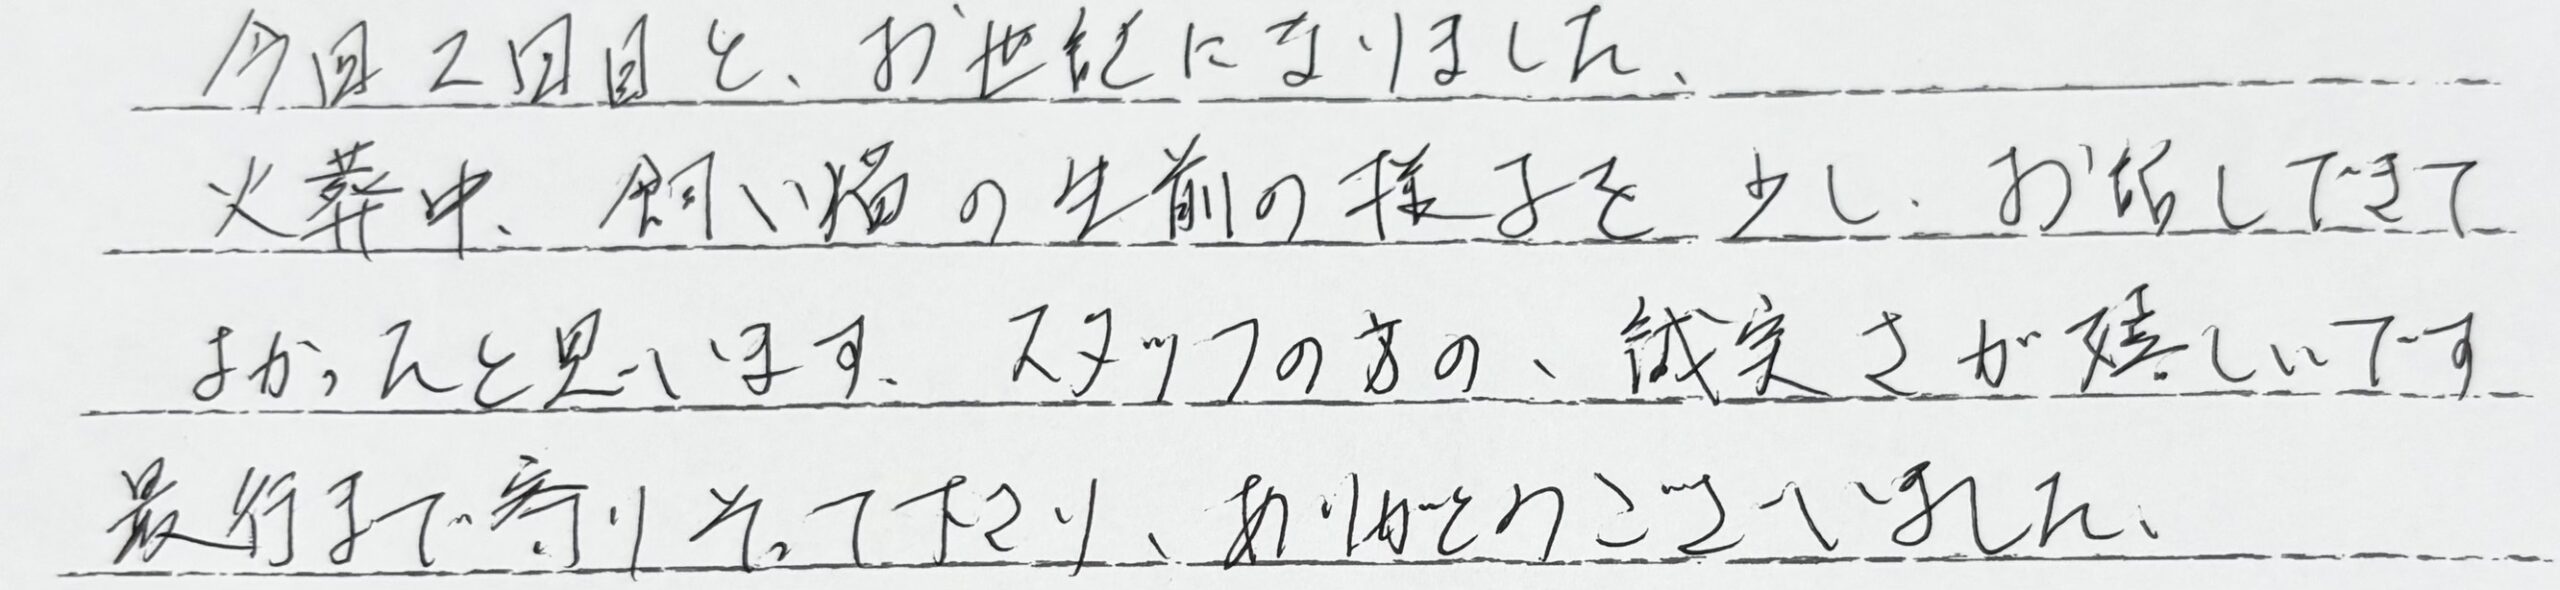 今回2回目と、お世話になりました、
火葬中、飼い猫の生前の様子を少し、お話しできて
よかったと思います、スタッフの方の、誠実さが嬉しいです
最後まで寄りそって下さり、ありがとうございました、